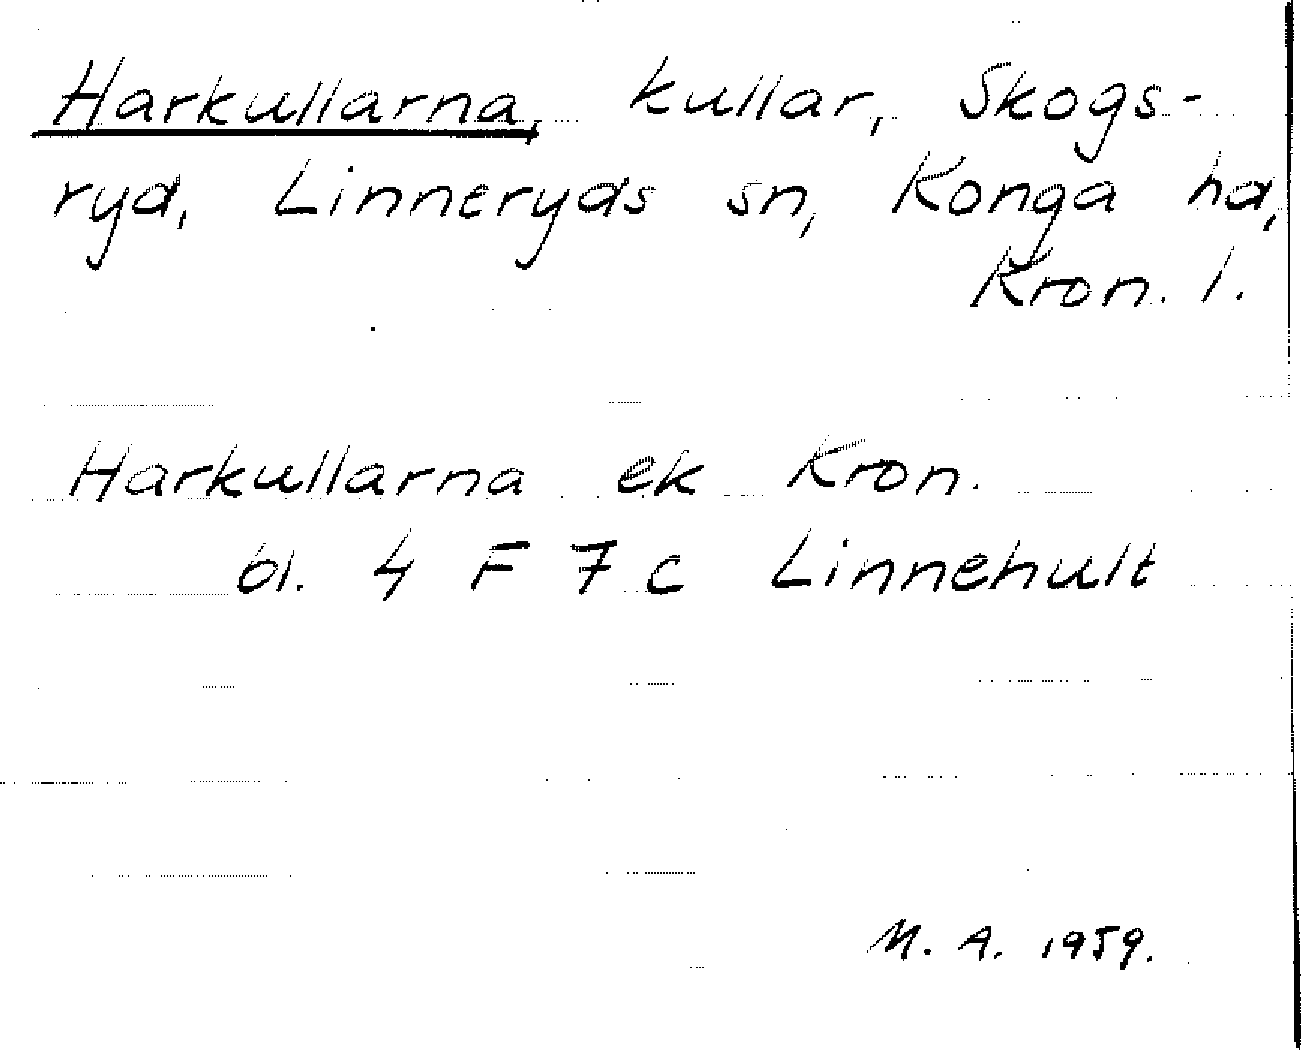 Harkullarna, kullar, Skogs-
ryd, Linneryds sn, Konga hd,
Kron. l.
Harkullarna ek Kron.
bl. 4 F 7 c Linnehult
M. A. 1959.